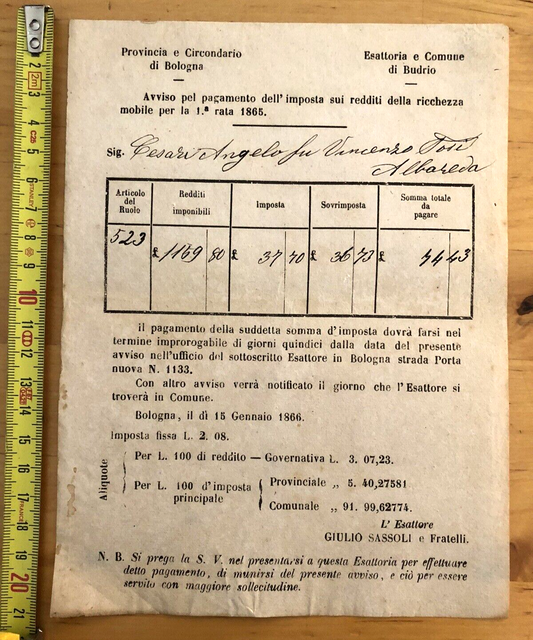 Provincia e Circondario
di Bologna
Esattoria e Comune
di Budrio
Avviso pel pagamento dell'imposta sui redditi della ricchezza
mobile per la 1.ª rata 1865.
Sig. Cesari Angelo fu Vincenzo
Albareda
Articolo del Ruolo
Redditi imponibili
Imposta
Sovrimposta
Somma totale da pagare
523 £ 1159 80 £ 37 70 £ 36 73 £ 74 43
il pagamento della suddetta somma d'imposta dovrà farsi nel
termine improrogabile di giorni quindici dalla data del presente
avviso nell'ufficio del sottoscritto Esattore in Bologna strada Porta
nuova N. 1133.
Con altro avviso verrà notificato il giorno che l'Esattore si
troverà in Comune.
Bologna, il dì 15 Gennaio 1866.
Imposta fissa L. 2. 08.
Aliquote
Per L. 100 di reddito — Governativa L. 3. 07,23.
Per L. 100 d'imposta principale
Provinciale „ 5. 40,27581
Comunale „ 91. 99,62774.
L' Esattore
GIULIO SASSOLI e Fratelli.
N. B. Si prega la S. V. nel presentarsi a questa Esattoria per effettuare
detto pagamento, di munirsi del presente avviso, e ciò per essere
servito con maggiore sollecitudine.
2 3 4 5 6 7 8 9 10 11 12 13 14 15 16 17 18 19 20 21